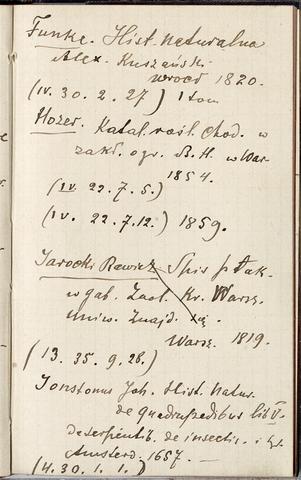 Funke. Hist. naturalna
Alex. Kuszański
wrocł 1820.
(IV. 30. 2. 27) 1 tom
Hozer. Katal. rośl. chod. w
zakł. ogr. B. H. w War
1854.
(IV. 22. 7. 5.)
(IV. 22. 7. 12.) 1859.
Jarocki Rawicz Spis ptak.
w gab. Zool. Kr. Warsz.
uniw. znajd. się
Warsz. 1819.
(13. 35. 9. 28.)
Jonstonus Joh. Hist. Natur.
de quadrupedibus lib V.
de serpentib. de insectis. i t.
Amsterd. 1657. —
(4. 30. 1. 1.)